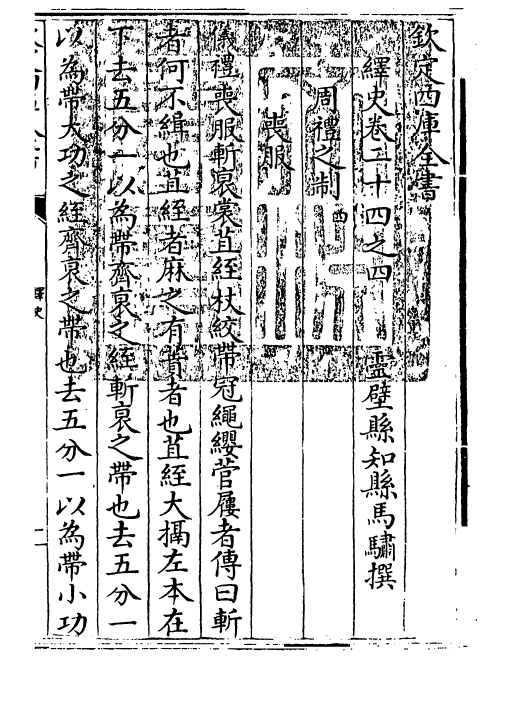 欽定四庫全書
繹史卷二十四之四
靈壁縣知縣馬驌撰
周禮之制四
喪服
儀禮喪服斬衰裳苴絰杖絞帶冠繩纓菅屨者傳曰斬
者何不緝也苴絰者麻之有蕡者也苴絰大搹左本在
下去五分一以為帶齊衰之絰斬衰之帶也去五分一
以為帶大功之絰齊衰之帶也去五分一以為帶小功
繹史